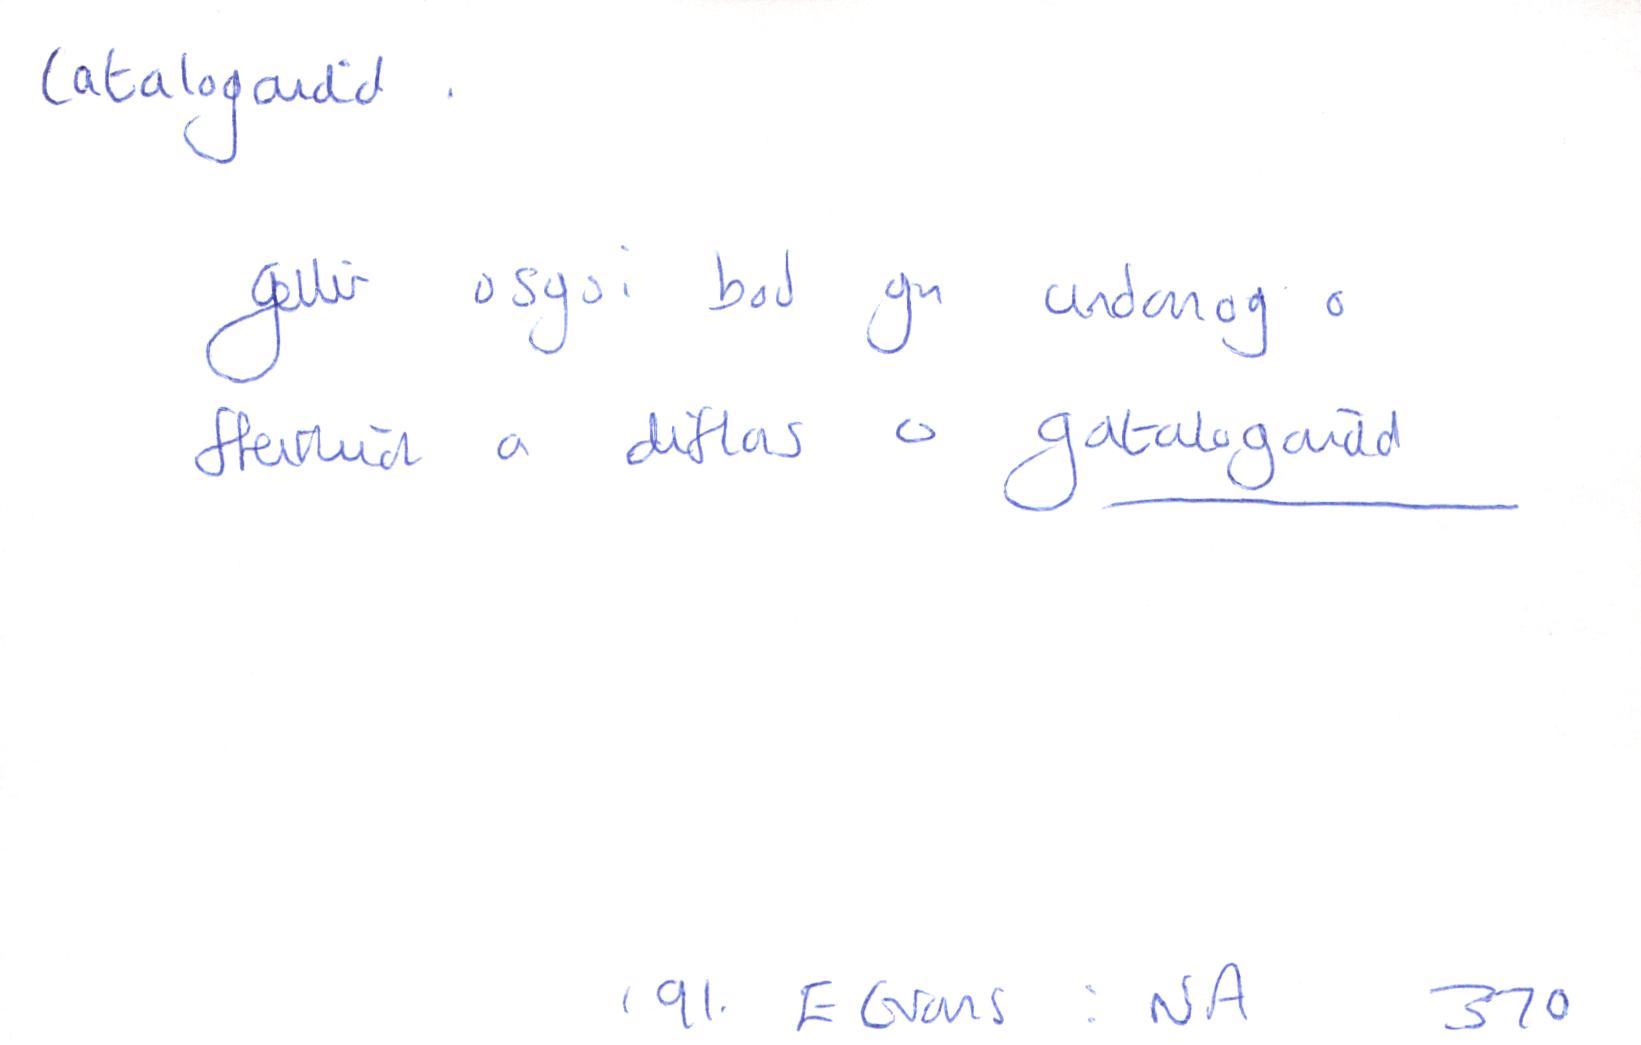 Catalogaidd .
gellir osgoi bod yn undonog o
ffeithiol a diflas o gatalogaidd
191. E Evans : NA 370